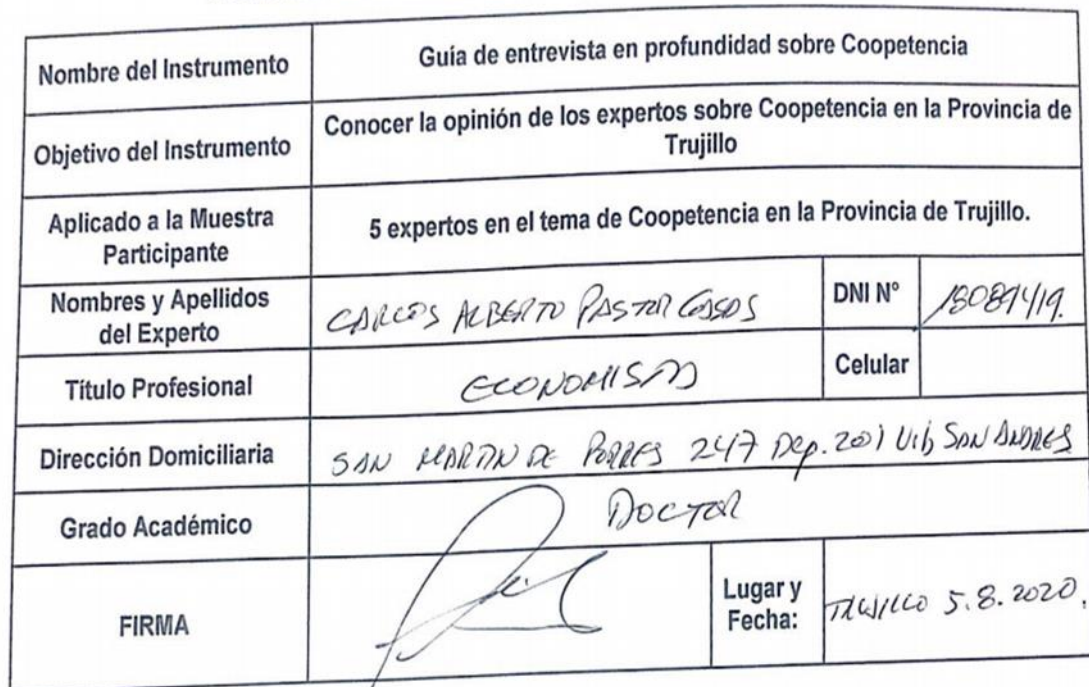 Nombre del Instrumento
Guía de entrevista en profundidad sobre Coopetencia
Objetivo del Instrumento
Conocer la opinión de los expertos sobre Coopetencia en la Provincia de
Trujillo
Aplicado a la Muestra
Participante
5 expertos en el tema de Coopetencia en la Provincia de Trujillo.
Nombres y Apellidos
del Experto
CARLOS ALBERTO PASTOR
DNI N°
Título Profesional
ECONOMISTA
Celular
Dirección Domiciliaria
SAN MARTIN DE PORRES 247 Dep. 201 Urb SAN ANDRES
Grado Académico
DOCTOR
FIRMA
Lugar y
Fecha:
TRUJILLO 5.8.2020.